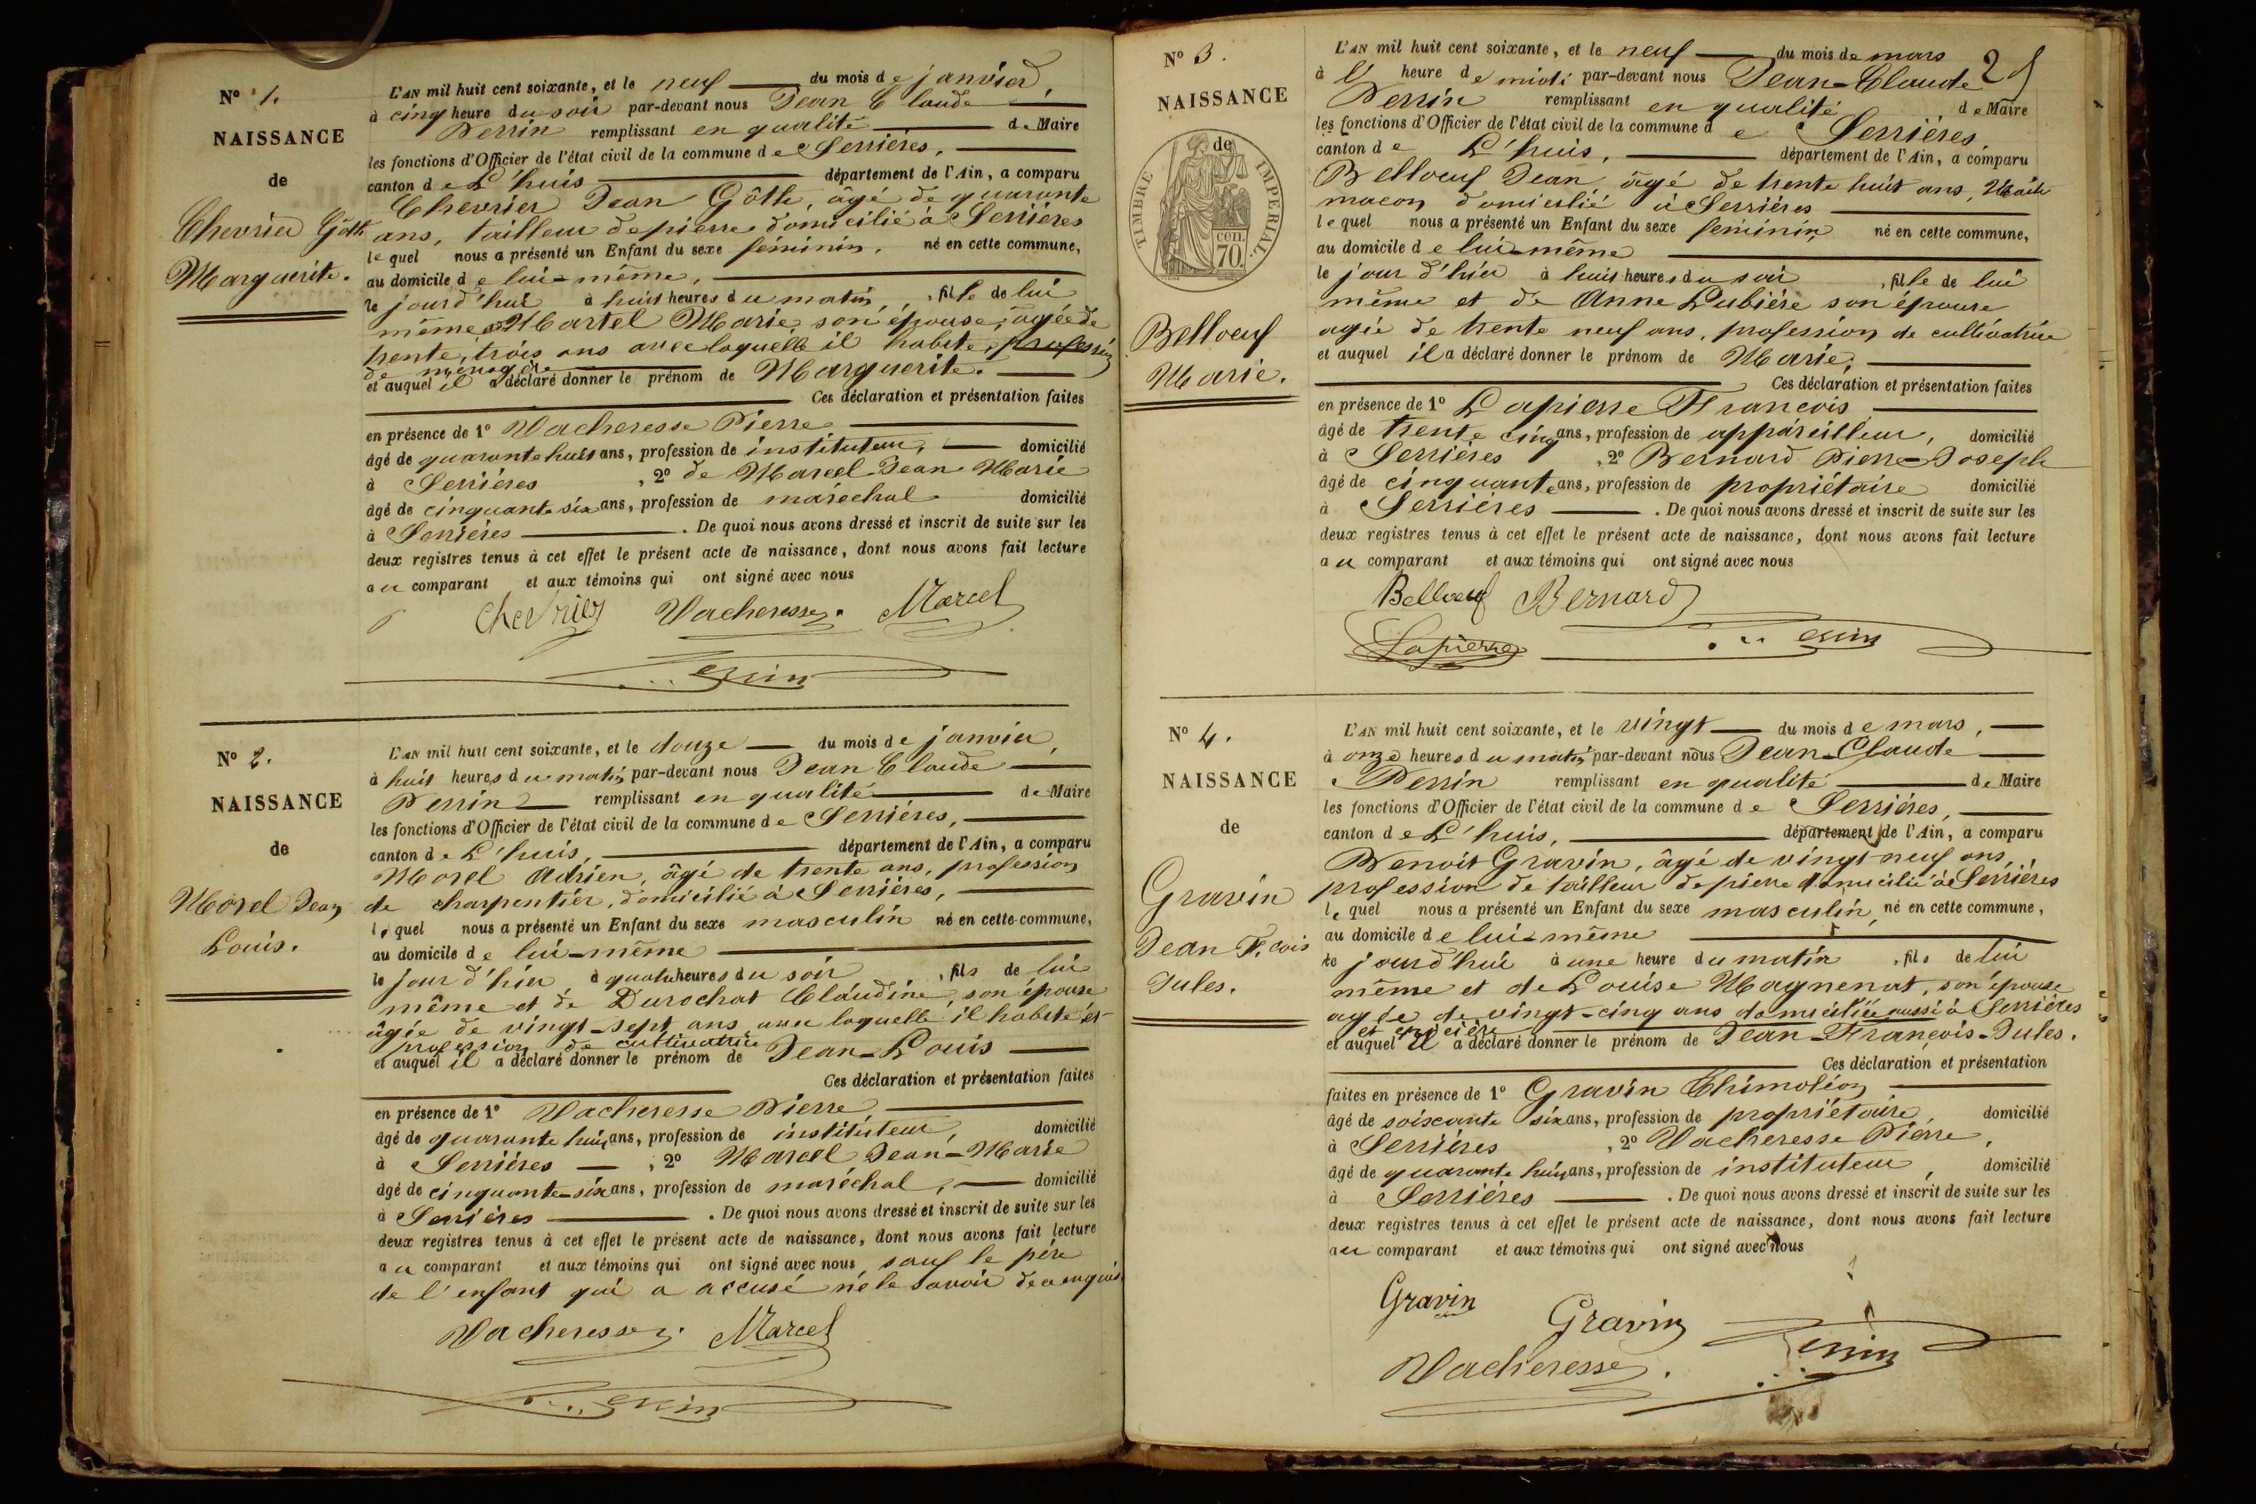 N° 1.
NAISSANCE
de
Chevrier Gôth
Marguerite.
L'AN mil huit cent soixante, et le neuf du mois de janvier,
à cinq heure du soir par-devant nous Jean Claude
Perrin remplissant en qualité de Maire
les fonctions d'Officier de l'état civil de la commune de Serrières,
canton de L'huis département de l'Ain, a comparu
Chevrier Jean Gôth, âgé de quarante
ans, tailleur de pierre domicilié à Serrières
lequel nous a présenté un Enfant du sexe féminin, né en cette commune,
au domicile de lui-même,
le jourd'hui à huit heures du matin, fille de lui
même et Martel Marie, son épouse, âgée de
trente, trois ans avec laquelle il habite, profession
de ménagère
et auquel il a déclaré donner le prénom de Marguerite.
Ces déclaration et présentation faites
en présence de 1° Vacheresse Pierre
âgé de quarante huit ans, profession de instituteur, domicilié
à Serrières, 2° de Marcel Jean Marie
âgé de cinquante six ans, profession de maréchal domicilié
à Serrières. De quoi nous avons dressé et inscrit de suite sur les
deux registres tenus à cet effet le présent acte de naissance, dont nous avons fait lecture
au comparant et aux témoins qui ont signé avec nous
Chevrier Vacheresse. Marcel
Perrin
N° 2.
NAISSANCE
de
Morel Jean
Louis.
L'AN mil huit cent soixante, et le douze du mois de janvier,
à huit heures du matin par-devant nous Jean Claude
Perrin remplissant en qualité de Maire
les fonctions d'Officier de l'état civil de la commune de Serrières,
canton de L'huis, département de l'Ain, a comparu
Morel Adrien, âgé de trente ans, profession
de charpentier, domicilié à Serrières,
lequel nous a présenté un Enfant du sexe masculin né en cette commune,
au domicile de lui-même
le jour d'hier à quatre heures du soir, fils de lui
même et de Durochat Claudine, son épouse
âgée de vingt-sept ans avec laquelle il habite et
profession de cultivatrice
et auquel il a déclaré donner le prénom de Jean-Louis
Ces déclaration et présentation faites
en présence de 1° Vacheresse Pierre
âgé de quarante huit ans, profession de instituteur, domicilié
à Serrières, 2° Marcel Jean-Marie
âgé de cinquante-six ans, profession de maréchal, domicilié
à Serrières. De quoi nous avons dressé et inscrit de suite sur les
deux registres tenus à cet effet le présent acte de naissance, dont nous avons fait lecture
au comparant et aux témoins qui ont signé avec nous sauf le père
de l'enfant qui a accusé ne le savoir de ce enquis
Vacheresse. Marcel
Perrin
25
N° 3.
NAISSANCE
de
TIMBRE IMPERIAL.
70 CEN.
Belloeuf
Marie.
L'AN mil huit cent soixante, et le neuf du mois de mars
à l' heure de midi par-devant nous Jean-Claude
Perrin remplissant en qualité de Maire
les fonctions d'Officier de l'état civil de la commune de Serrières,
canton de L'huis, département de l'Ain, a comparu
Belloeuf Jean âgé de trente huit ans,
maçon domicilié à Serrières
lequel nous a présenté un Enfant du sexe féminin né en cette commune,
au domicile de lui-même
le jour d'hier à huit heures du soir, fille de lui
même et de Anne Lubière son épouse
agée de trente neuf ans, profession de cultivatrice
et auquel il a déclaré donner le prénom de Marie,
Ces déclaration et présentation faites
en présence de 1° Lapierre Francois
âgé de trente cinq ans, profession de appareilleur, domicilié
à Serrières, 2° Bernard Pierre-Joseph
âgé de cinquante ans, profession de propriétaire domicilié
à Serrières. De quoi nous avons dressé et inscrit de suite sur les
deux registres tenus à cet effet le présent acte de naissance, dont nous avons fait lecture
au comparant et aux témoins qui ont signé avec nous
Belloeuf Bernard
Lapierre Perrin
N° 4.
NAISSANCE
de
Gravin
Jean F.cois
Jules.
L'AN mil huit cent soixante, et le vingt du mois de mars,
à onze heures du matin par-devant nous Jean-Claude
Perrin remplissant en qualité de Maire
les fonctions d'Officier de l'état civil de la commune de Serrières,
canton de L'huis, département de l'Ain, a comparu
Benoit Gravin, âgé de vingt-neuf ans,
profession de tailleur de pierre domicilié à Serrières
lequel nous a présenté un Enfant du sexe masculin, né en cette commune,
au domicile de lui-même
le jourd'hui à une heure du matin, fils de lui
même et de Louise Magnenat, son épouse
agée de vingt-cinq ans domiciliée aussi à Serrières
et épicière
et auquel il a déclaré donner le prénom de Jean-François-Jules.
Ces déclaration et présentation
faites en présence de 1° Gravin Thimoléon
âgé de soixante six ans, profession de propriétaire, domicilié
à Serrières, 2° Vacheresse Pierre,
âgé de quarante huit ans, profession de instituteur, domicilié
à Serrières. De quoi nous avons dressé et inscrit de suite sur les
deux registres tenus à cet effet le présent acte de naissance, dont nous avons fait lecture
au comparant et aux témoins qui ont signé avec nous
Gravin
Gravin
Vacheresse. Perrin